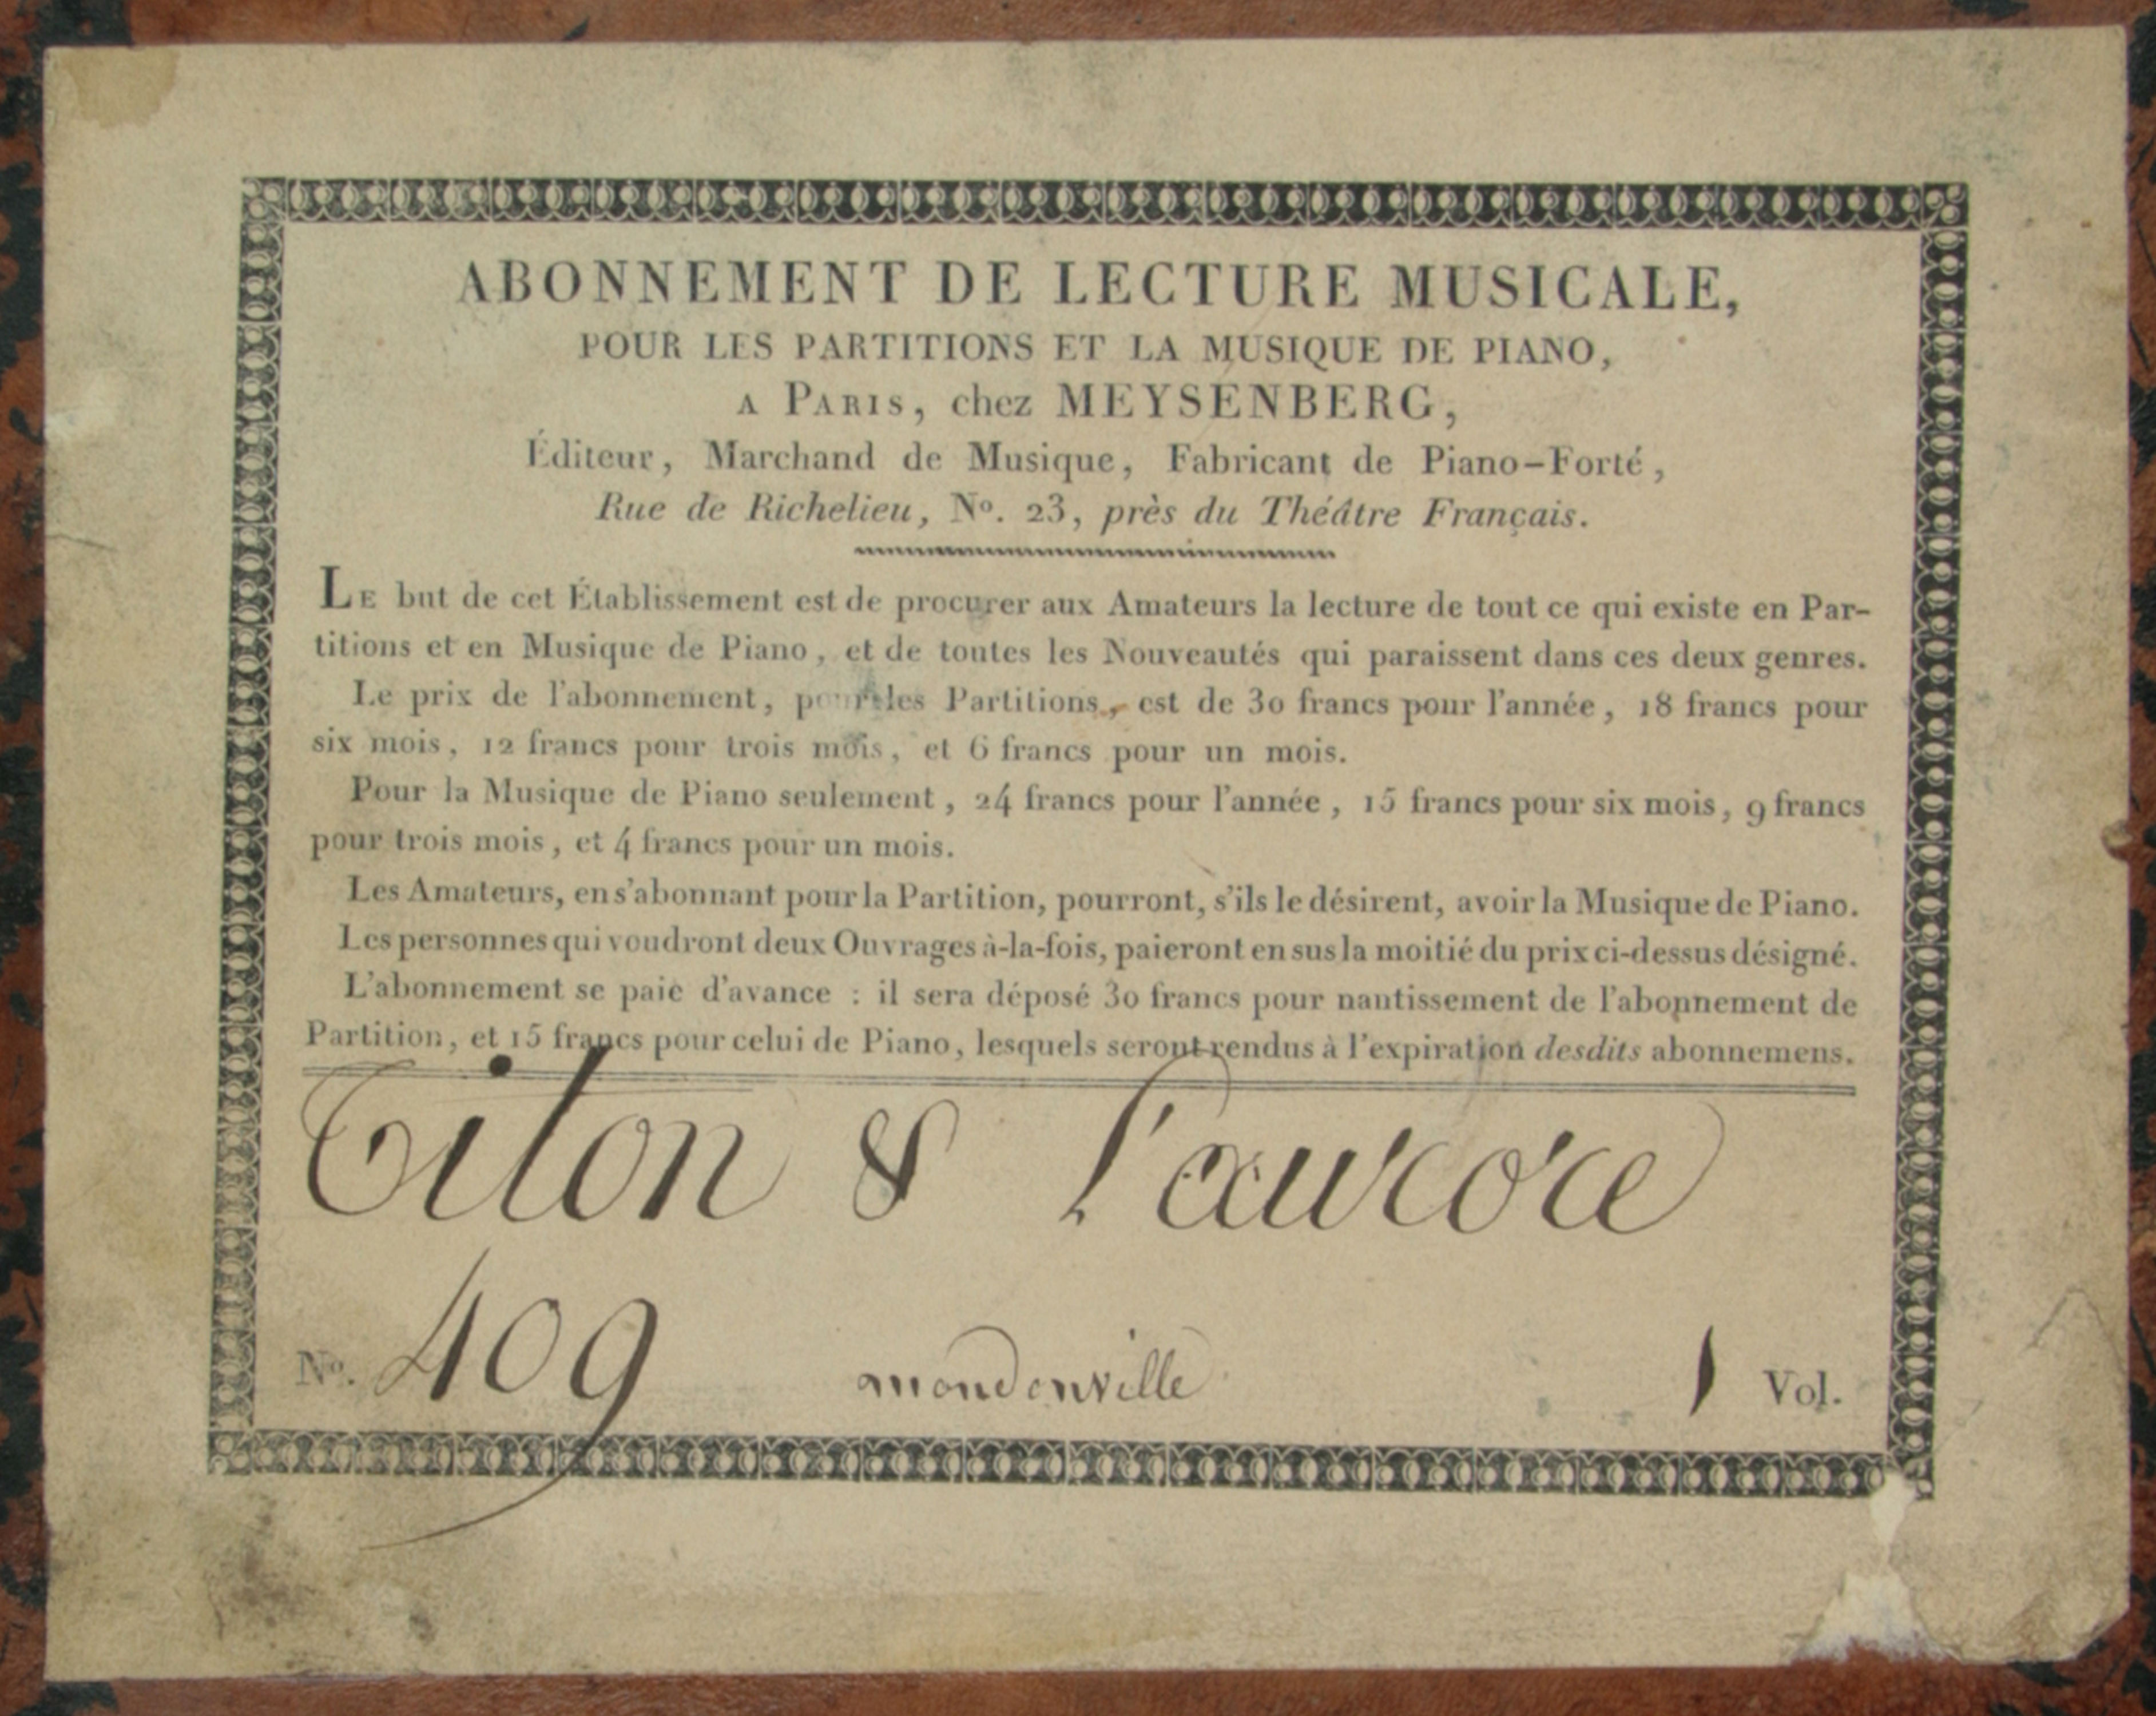 ABONNEMENT DE LECTURE MUSICALE,
POUR LES PARTITIONS ET LA MUSIQUE DE PIANO,
A PARIS, chez MEYSENBERG,
Éditeur, Marchand de Musique, Fabricant de Piano-Forté,
Rue de Richelieu, Nº. 23, près du Théâtre Français.
LE but de cet Établissement est de procurer aux Amateurs la lecture de tout ce qui existe en Par-
titions et en Musique de Piano, et de toutes les Nouveautés qui paraissent dans ces deux genres.
Le prix de l'abonnement, pour les Partitions, est de 30 francs pour l'année, 18 francs pour
six mois, 12 francs pour trois mois, et 6 francs pour un mois.
Pour la Musique de Piano seulement, 24 francs pour l'année, 15 francs pour six mois, 9 francs
pour trois mois, et 4 francs pour un mois.
Les Amateurs, en s'abonnant pour la Partition, pourront, s'ils le désirent, avoir la Musique de Piano.
Les personnes qui voudront deux Ouvrages à-la-fois, paieront en sus la moitié du prix ci-dessus désigné.
L'abonnement se paie d'avance : il sera déposé 30 francs pour nantissement de l'abonnement de
Partition, et 15 francs pour celui de Piano, lesquels seront rendus à l'expiration desdits abonnemens.
Titon & l'aurore
Nº. 409 mondonville 1 Vol.